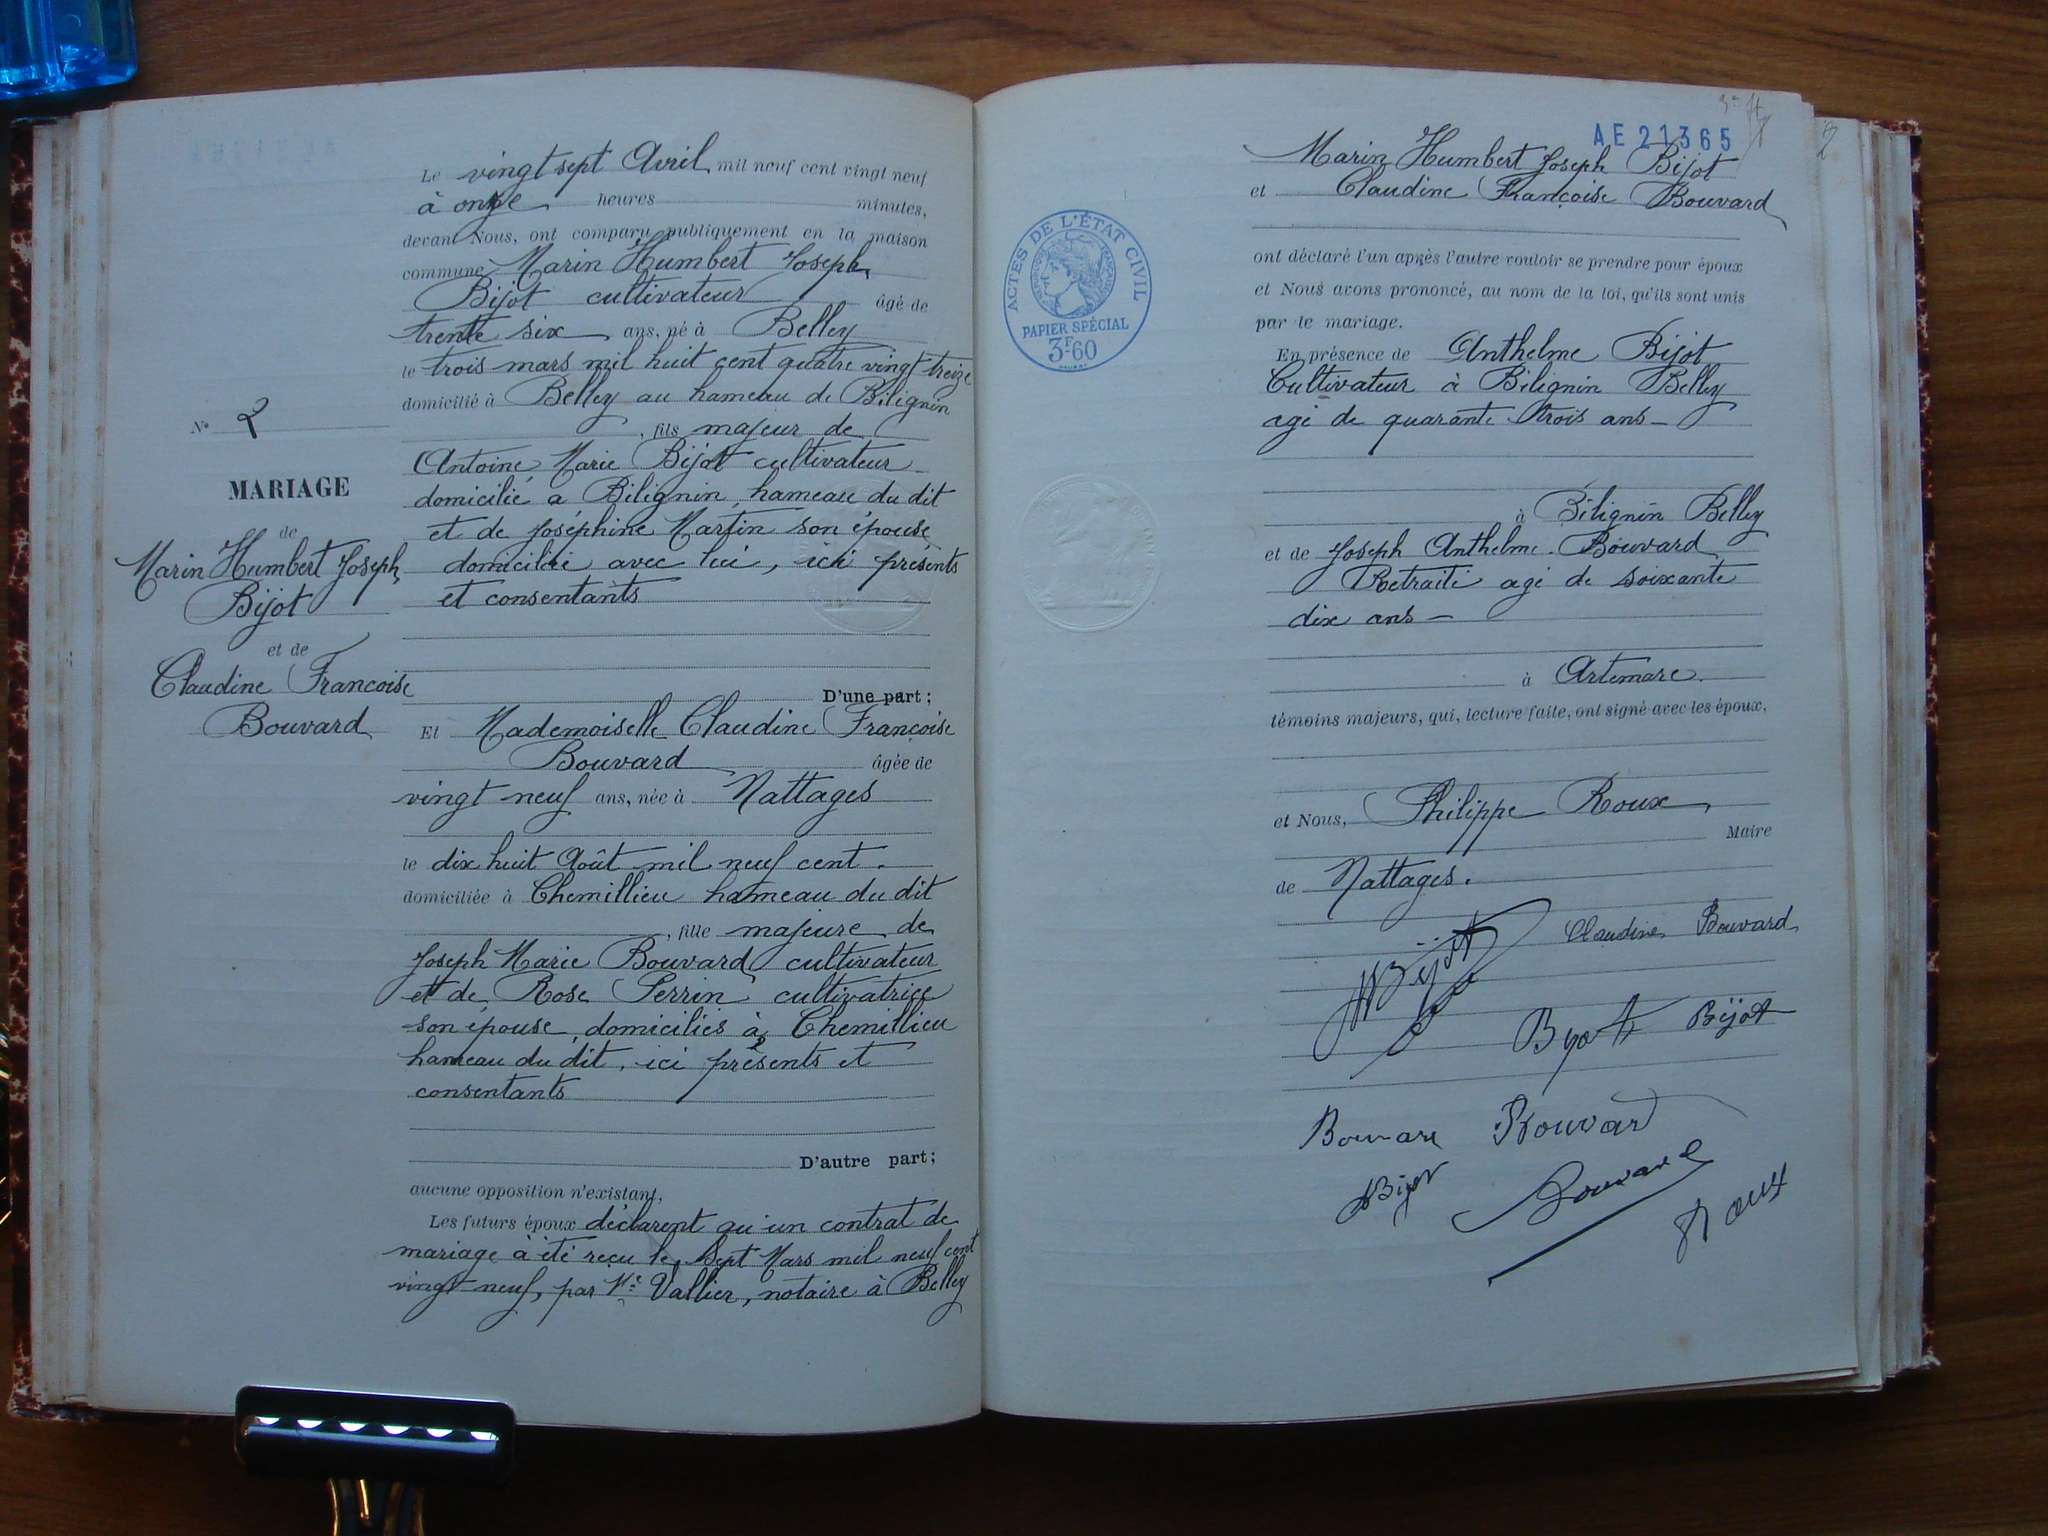 Le vingt sept Avril mil neuf cent vingt neuf
à onze heures minutes,
devant Nous, ont comparu publiquement en la maison
commune Marin Humbert Joseph
Bijot cultivateur âgé de
trente six ans, né à Belley
le trois mars mil huit cent quatre vingt treize
domicilié à Belley au hameau de Bilignin
, fils majeur de
Antoine Marie Bijot cultivateur
domicilié a Bilignin, hameau du dit
et de Joséphine Martin son épouse
domiciliée avec lui, ici présents
et consentants
D'une part;
N° 2
MARIAGE
de
Marin Humbert Joseph
Bijot
et de
Claudine Francoise
Bouvard
Et Mademoiselle Claudine Françoise
Bouvard âgée de
vingt neuf ans, née à Nattages
le dix huit Août mil neuf cent.
domiciliée à Chemillieu hameau du dit
, fille majeure de
Joseph Marie Bouvard cultivateur
et de Rose Perrin cultivatrice
son épouse domiciliés à Chemillieu
hameau du dit, ici présents et
consentants
D'autre part;
aucune opposition n'existant,
Les futurs époux déclarent qu'un contrat de
mariage à été reçu le Sept Mars mil neuf cent
vingt neuf, par Me Vallier, notaire à Belley
AE 21365
2
Marin Humbert Joseph Bijot
et Claudine Françoise Bouvard
ACTES DE L'ÉTAT CIVIL
RÉPUBLIQUE FRANÇAISE
PAPIER SPÉCIAL
3F60
ont déclaré l'un après l'autre vouloir se prendre pour époux
et Nous avons prononcé, au nom de la loi, qu'ils sont unis
par le mariage.
En présence de Anthelme Bijot
Cultivateur à Bilignin Belley
agé de quarante trois ans _
à Bilignin Belley
et de Joseph Anthelme Bouvard
Retraité agé de soixante
dix ans _
à Artemare.
témoins majeurs, qui, lecture faite, ont signé avec les époux,
et Nous, Philippe Roux
Maire
de Nattages.
Bijot Claudine Bouvard
Byot Bijot
Bouvard Bouvard
Bijot Bouvard Roux